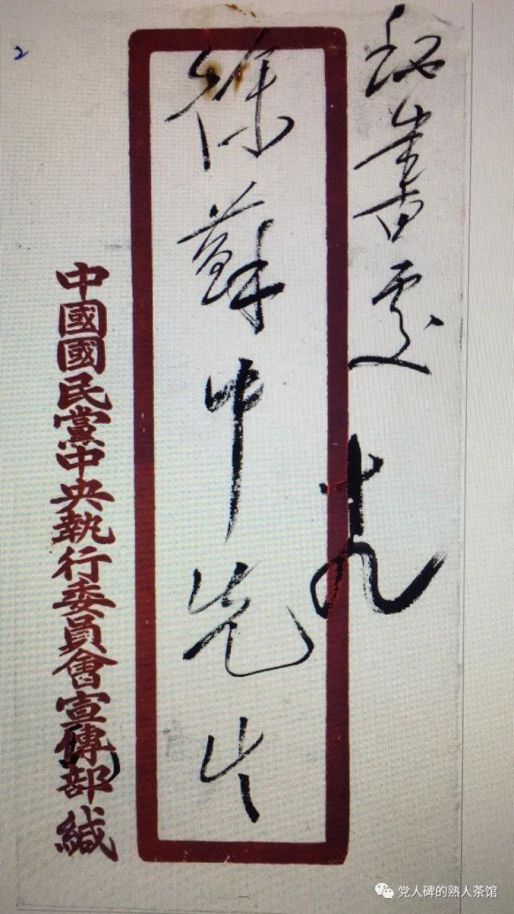 2
秘書處
徐蘇中先生
中國國民黨中央執行委員會宣傳部緘
党人碑的熟人茶馆